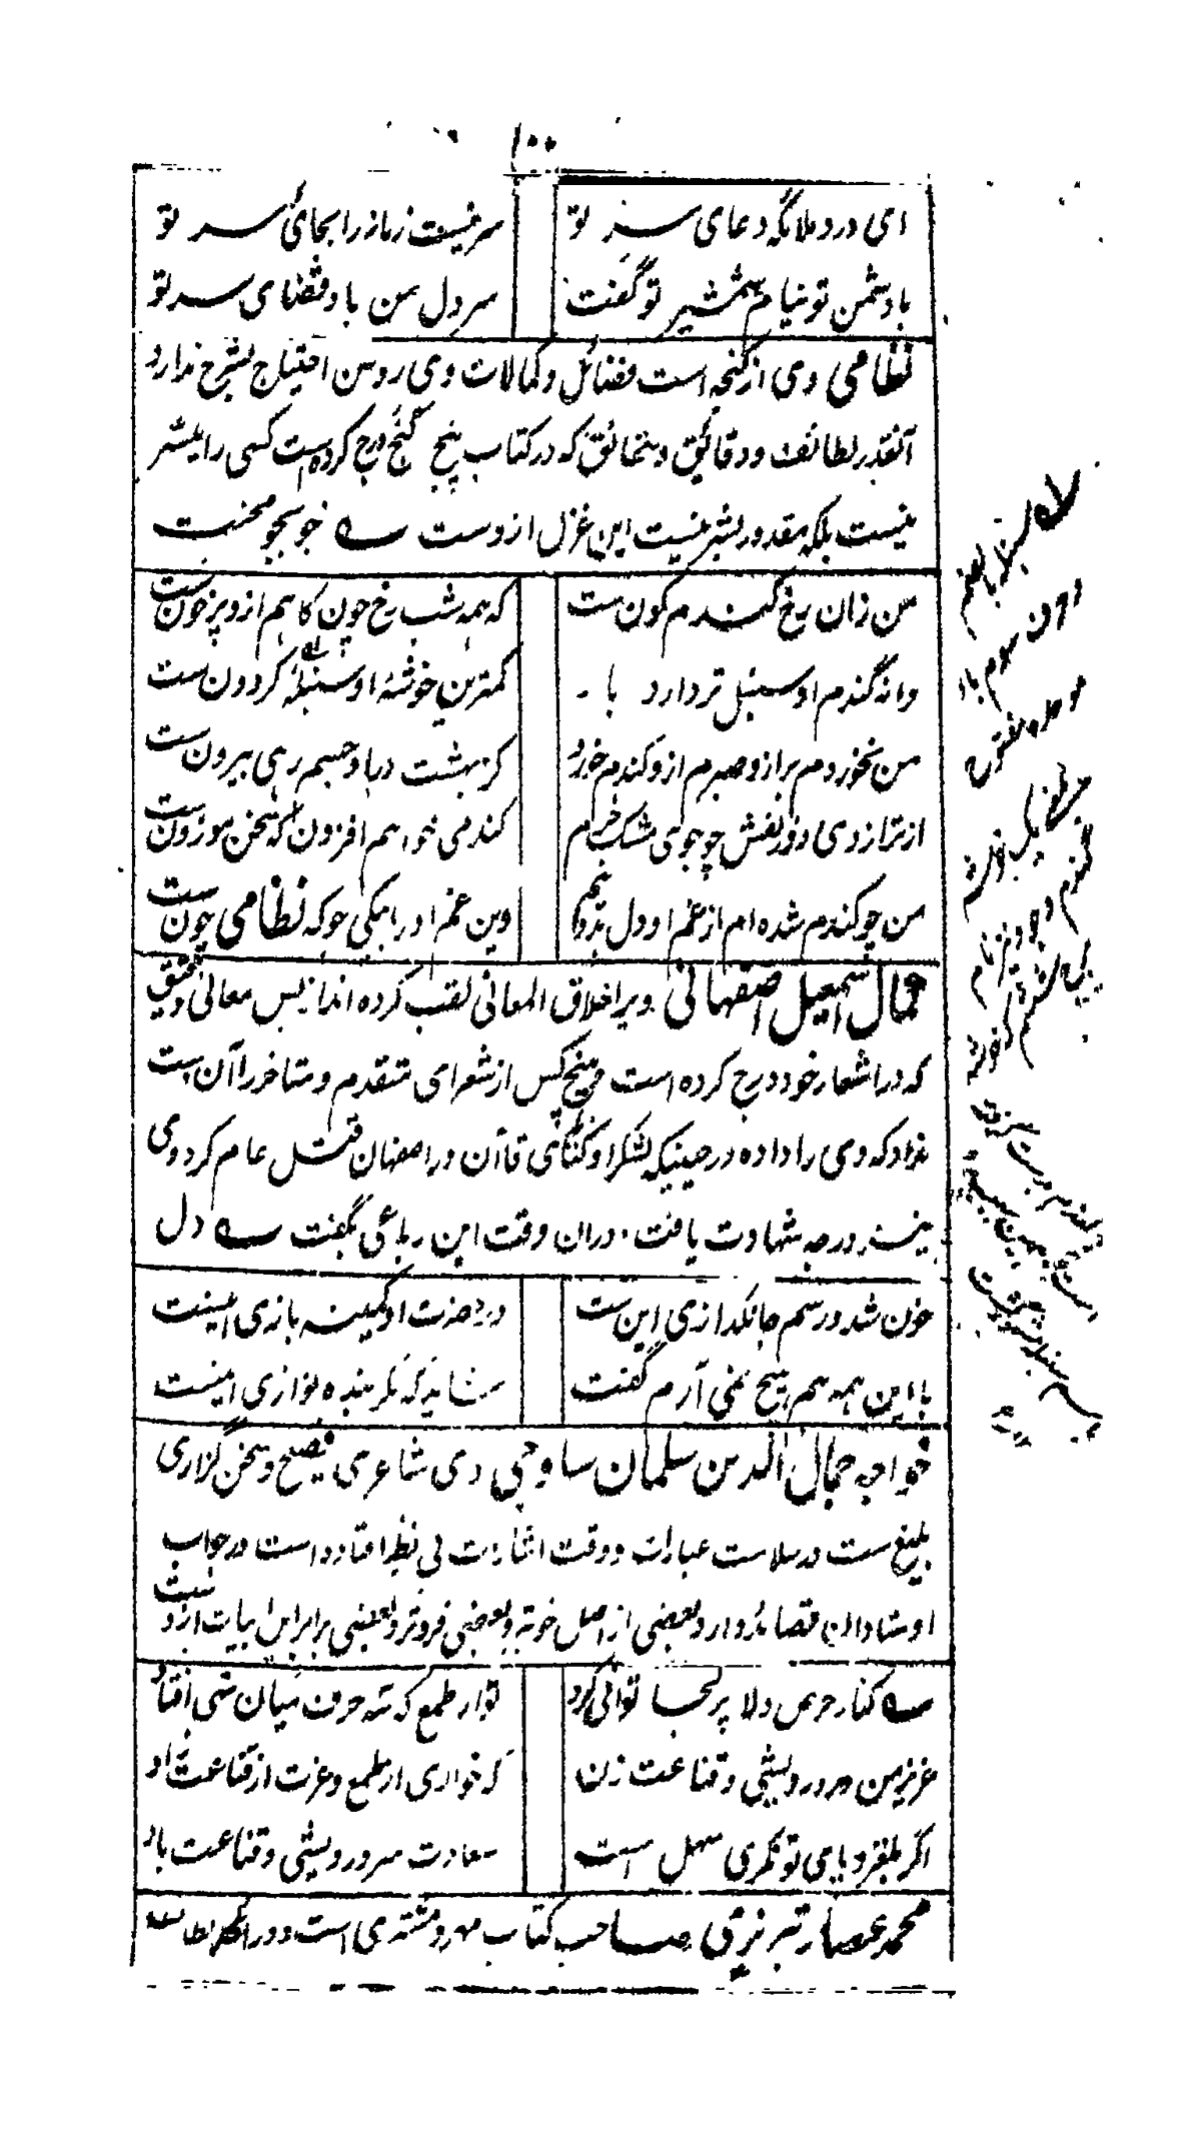 ۱۰۰
ای درد ملائکه دعای سر تو
سر نیست زمانه را بجای سر تو
با دشمن تو نیام شمشیر تو گفت
سر دل من باد قضای سر تو
نظامی وی از گنجه است فضائل و کمالات وی روشن احتیاج بشرح ندارد
آنقدر لطائف و دقائق و حقائق که در کتاب پنج گنج درج کرده است کسی را میسر
نیست بلکه مقدور بشر نیست این غزل ازوست سه جو بجو محنت
من زان رخ گندم گون ست
که همه شب رخ چون کاهم ازو پر خون ست
دانه گندم او سنبل تر دارد با
کمترین خوشه او سنبله گردون ست
من نخوردم بر ازو صبرم ازو گندم خورد
کز بهشت در او جسم رهی بیرون ست
از ترازوی دو زلفش چو جوی مشک خرم
گندمی خواهم افزون که سخن موزون ست
من چو گندم شده ام از غم او دل بدو نیم
وین غم او را بیکی جو که نظامی چون ست
جمال اسمعیل اصفهانی ویرا خلاق المعانی لقب کرده اند از بس معانی دقیق
که در اشعار خود درج کرده است و هیچ کس از شعرای متقدم و متاخر را آن دست
نداد که وی را داده در حینیکه لشکر اوکتای قاآن در اصفهان قتل عام کرد وی
نیز درجه شهادت یافت در ان وقت این رباعی بگفت سه دل
خون شد و رسم جانگدازی این ست
در حضرت او کمینه بازی اینست
با این همه هم هیچ نمی آرم گفت
شاید که مگر بنده نوازی اینست
خواجه جمال الدین سلمان ساوجی وی شاعری فصیح و سخن گزاری
بلیغ ست در سلاست عبارت و دقت اشارت بی نظیر افتاده است در جواب
اوستادان قصائد دارد بعضی از اصل خوبتر و بعضی فروتر و بعضی برابر این ابیات ازوست
سه کنار حرص دلا پر کجا توانی کرد
تو از طمع که سه حرف میان تهی افتاد
عزیز من در درویشی و قناعت زن
که خواری از طمع و عزت از قناعت زاد
اگر بلغزد پای توانگری سهل است
سعادت سر درویشی و قناعت باد
محمد عصار تبریزی صاحب کتاب مهر و مشتری است و در آنجا لطائف